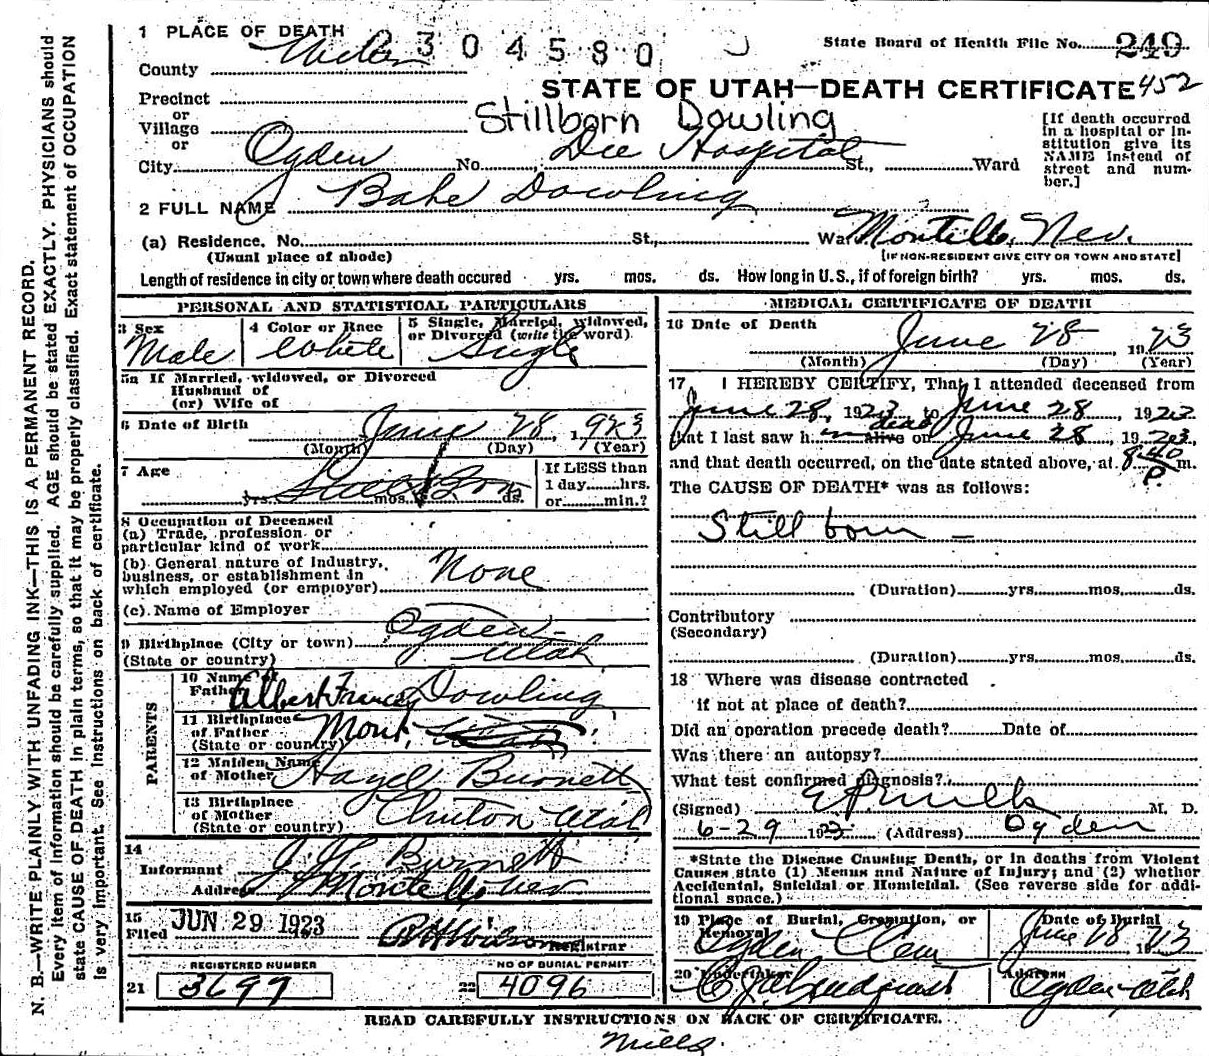 1 PLACE OF DEATH 2304580 State Board of Health File No. 249
County Weber
STATE OF UTAH—DEATH CERTIFICATE 452
Precinct
or
Village
or
Stillborn Dowling
[If death occurred in a hospital or institution give its NAME instead of street and number.]
City Ogden No. Dee Hospital St., Ward
2 FULL NAME Babe Dowling
(a) Residence. No. St., Ward Montello, Nev.
(Usual place of abode) [IF NON-RESIDENT GIVE CITY OR TOWN AND STATE]
Length of residence in city or town where death occured yrs. mos. ds. How long in U.S., if of foreign birth? yrs. mos. ds.
PERSONAL AND STATISTICAL PARTICULARS
3 Sex
Male
4 Color or Race
White
5 Single, Married, widowed, or Divorced (write the word)
Single
5a If Married, widowed, or Divorced
Husband of
(or) Wife of
6 Date of Birth June 28, 1923
(Month) (Day) (Year)
7 Age
yrs. mos. ds.
If LESS than
1 day hrs.
or min.?
8 Occupation of Deceased
(a) Trade, profession or
particular kind of work
(b) General nature of Industry,
business, or establishment in
which employed (or employer) None
(c) Name of Employer
9 Birthplace (City or town) Ogden
(State or country) Utah
PARENTS
10 Name of
Father Albert Francis Dowling
11 Birthplace
of Father
(State or country) Mont.
12 Maiden Name
of Mother Hazel Burnett
13 Birthplace
of Mother
(State or country) Clinton Utah
14
Informant J. H. Burnett
Address Montello, Nev
15
Filed JUN 29 1923
Registrar
REGISTERED NUMBER
21 3697
NO OF BURIAL PERMIT
22 4096
MEDICAL CERTIFICATE OF DEATH
16 Date of Death June 28 1923
(Month) (Day) (Year)
17 I HEREBY CERTIFY, That I attended deceased from
June 28, 1923, to June 28, 1923
that I last saw h im alive dead on June 28, 1923,
and that death occurred, on the date stated above, at 8 40 P m.
The CAUSE OF DEATH* was as follows:
Still born —
(Duration) yrs. mos. ds.
Contributory
(Secondary)
(Duration) yrs. mos. ds.
18 Where was disease contracted
if not at place of death?
Did an operation precede death? Date of
Was there an autopsy?
What test confirmed diagnosis?
(Signed) E P Mills M. D.
6-29 1923 (Address) Ogden
*State the Disease Causing Death, or in deaths from Violent
Causes state (1) Menus and Nature of Injury; and (2) whether
Accidental, Suicidal or Homicidal. (See reverse side for addi-
tional space.)
19 Place of Burial, Cremation, or Removal
Ogden Cem
Date of Burial
June 28 1923
20 Undertaker
Address
Ogden Utah
READ CAREFULLY INSTRUCTIONS ON BACK OF CERTIFICATE.
Mills
N. B.—WRITE PLAINLY WITH UNFADING INK—THIS IS A PERMANENT RECORD.
Every item of Information should be carefully supplied. AGE should be stated EXACTLY. PHYSICIANS should
state CAUSE OF DEATH in plain terms, so that it may be properly classified. Exact statement of OCCUPATION
is very important. See Instructions on back of certificate.